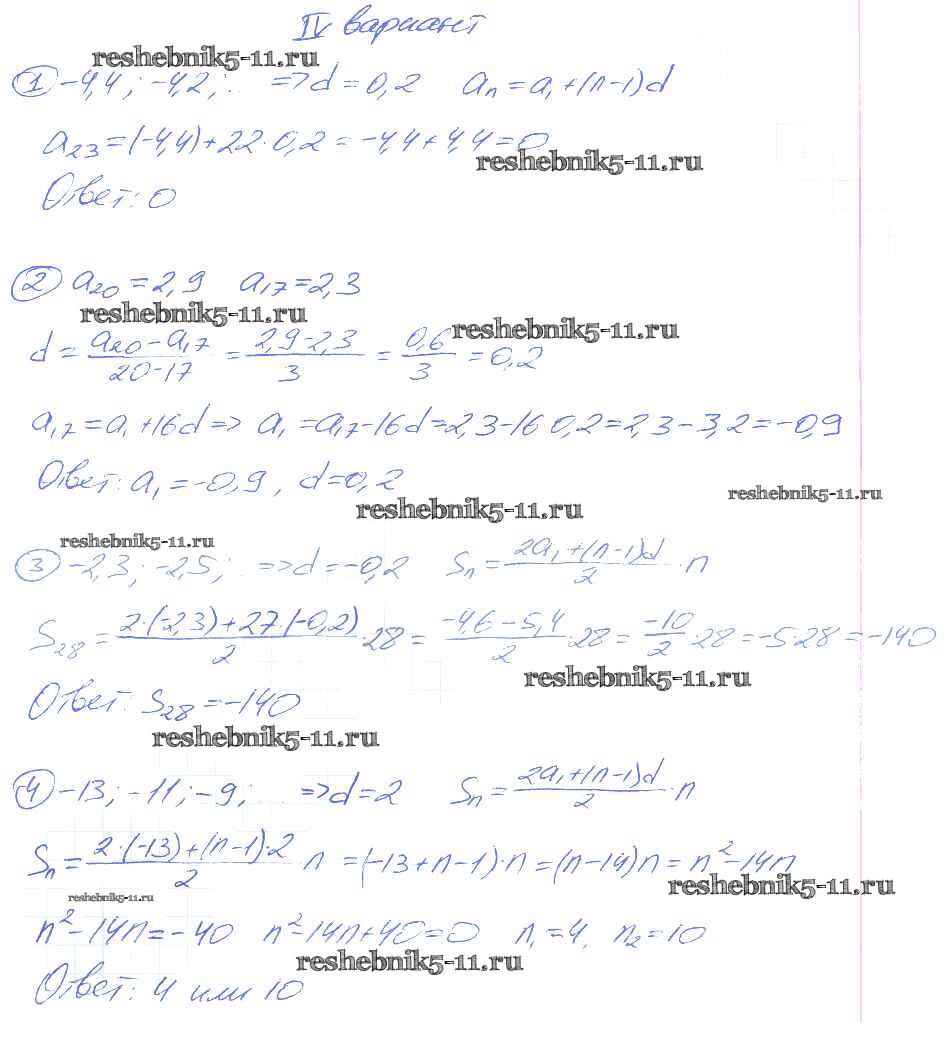 IV вариант
reshebnik5-11.ru
① -4,4; -4,2; .. => d = 0,2 aₙ = a₁ + (n-1)d
a₂₃ = (-4,4) + 22·0,2 = -4,4 + 4,4 = 0
reshebnik5-11.ru
Ответ: 0
② a₂₀ = 2,9 a₁₇ = 2,3
reshebnik5-11.ru
reshebnik5-11.ru
d = (a₂₀ - a₁₇)/(20-17) = (2,9-2,3)/3 = 0,6/3 = 0,2
a₁₇ = a₁ + 16d => a₁ = a₁₇ - 16d = 2,3 - 16 0,2 = 2,3 - 3,2 = -0,9
Ответ: a₁ = -0,9, d = 0,2
reshebnik5-11.ru
reshebnik5-11.ru
reshebnik5-11.ru
③ -2,3; -2,5; .. => d = -0,2 Sₙ = (2a₁ + (n-1)d)/2 · n
S₂₈ = (2·(-2,3) + 27·(-0,2))/2 · 28 = (-4,6 - 5,4)/2 · 28 = -10/2 · 28 = -5·28 = -140
reshebnik5-11.ru
Ответ: S₂₈ = -140
reshebnik5-11.ru
④ -13; -11; -9; .. => d = 2 Sₙ = (2a₁ + (n-1)d)/2 · n
Sₙ = (2·(-13) + (n-1)·2)/2 · n = (-13 + n - 1)·n = (n-14)n = n² - 14n
reshebnik5-11.ru
reshebnik5-11.ru
n² - 14n = -40 n² - 14n + 40 = 0 n₁ = 4, n₂ = 10
reshebnik5-11.ru
Ответ: 4 или 10